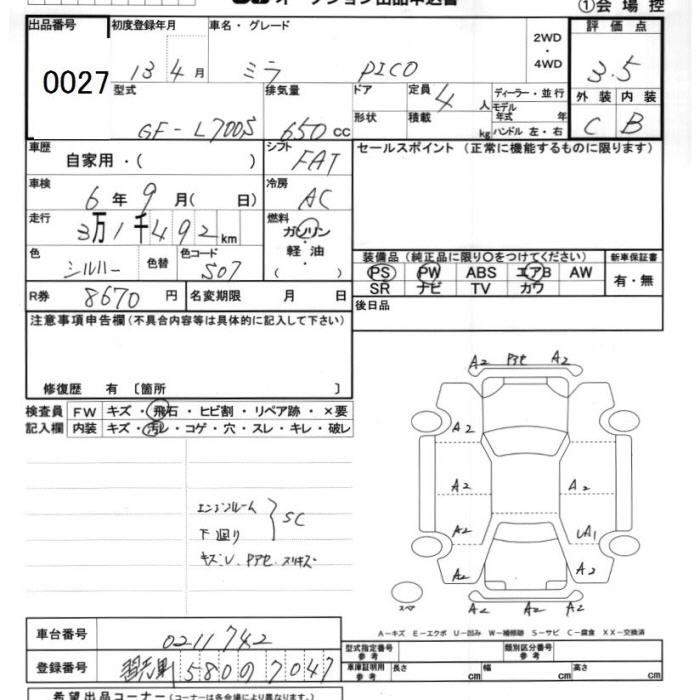 オークション出品申込書 ①会場控
出品番号 初度登録年月 車名・グレード 2WD・4WD 評価点
0027 13年4月 ミラ PICO 3.5
型式 排気量 ドア 定員 ディーラー・並行 外装 内装
GF-L700S 650cc 形状 積載 4人 kg モデル年式 年式 ハンドル 左・右 C B
車歴 シフト セールスポイント (正常に機能するものに限ります)
自家用・( ) FAT
車検 冷房
6年9月( 日) AC
走行 燃料
3万1千492km ガソリン・軽油・( )
色 色替 色コード 装備品 (純正品に限り〇をつけてください) 新車保証書
シルバー S07 PS PW ABS エアB AW 有・無
SR ナビ TV カワ
R券 8670円 名変期限 月 日 後日品
注意事項申告欄 (不具合内容等は具体的に記入して下さい)
修復歴 有 〔箇所 〕
検査員 FW キズ・飛石・ヒビ割・リペア跡・×要
記入欄 内装 キズ・汚レ・コゲ・穴・スレ・キレ・破レ
エンジンルーム
下廻り } SC
キズU、Pアセ、スリキズ
A2 Pアセ A2
A2
A2 A2
A2 UA1
A2 A2
A2 A2 A2
スペア
A-キズ E-エクボ U-凹み W-補修跡 S-サビ C-腐食 XX-交換済
車台番号 0211742
登録番号 580 0 7047
型式指定番号 参考 類別区分番号 参考
車庫証明用 参考 長さ cm 幅 cm 高さ cm
希望出品コーナー (コーナーは各会場により異なります。)